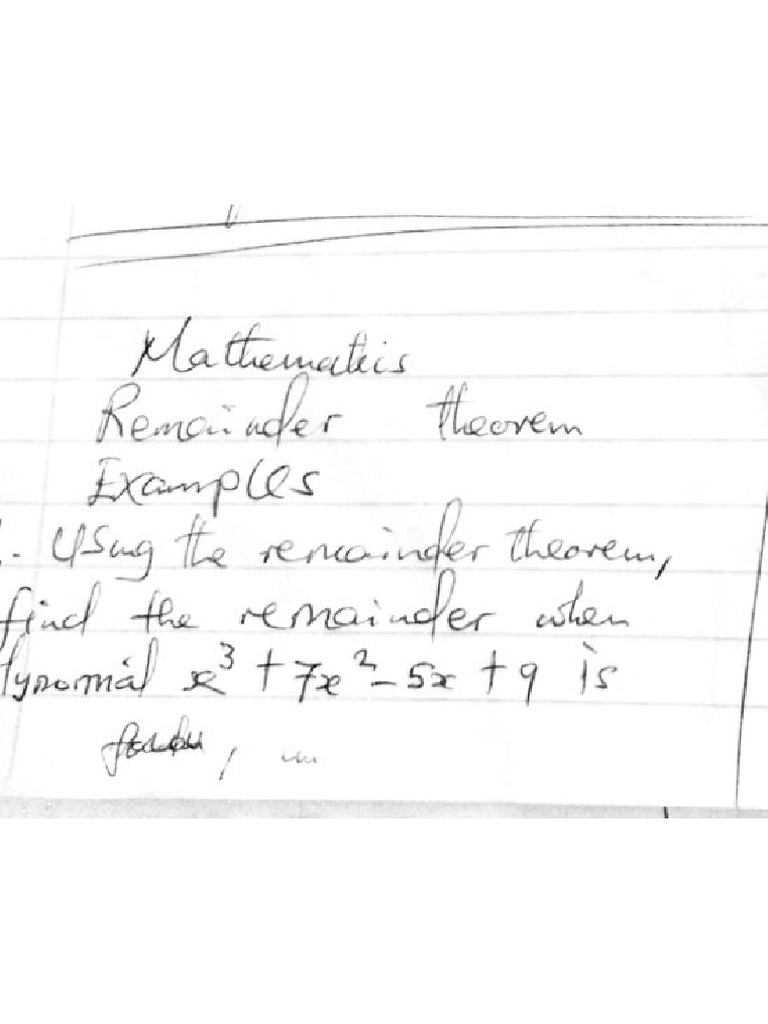 Mathematics
Remainder theorem
Examples
1. Using the remainder theorem,
find the remainder when
lynomial x³ + 7x² - 5x + 9 is